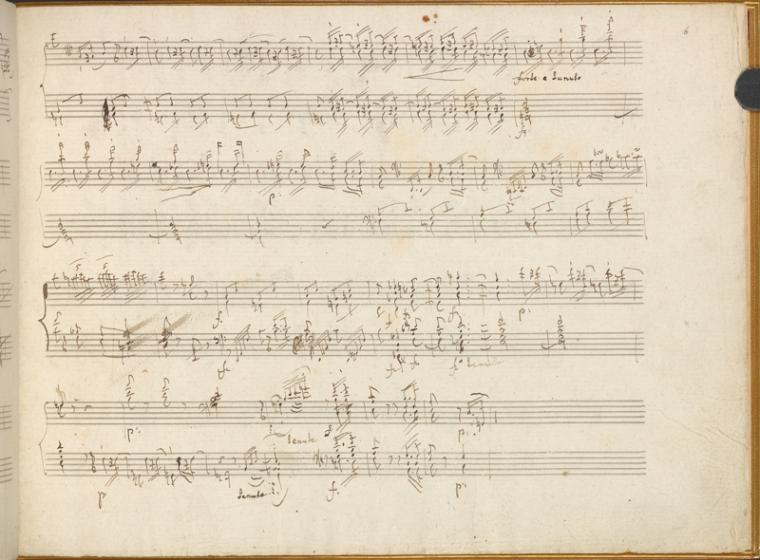 6
forte e tenuto
p
f.
p:
f.
f
p:
f. f. f. tenuto
p: p:
tenuto
p:
p tenuto f. p: